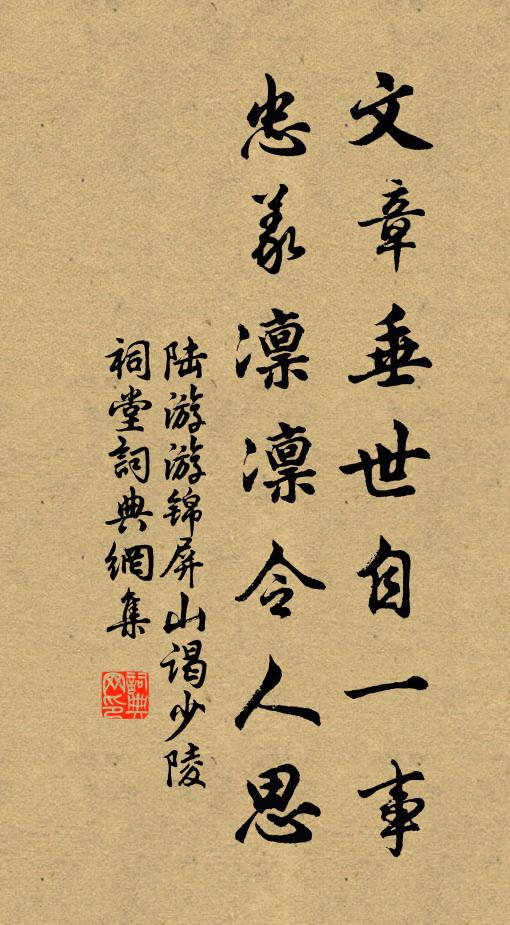 文章垂世自一事
忠义凛凛令人思
陆游游锦屏山谒少陵
祠堂詞典網集
詞典
网印